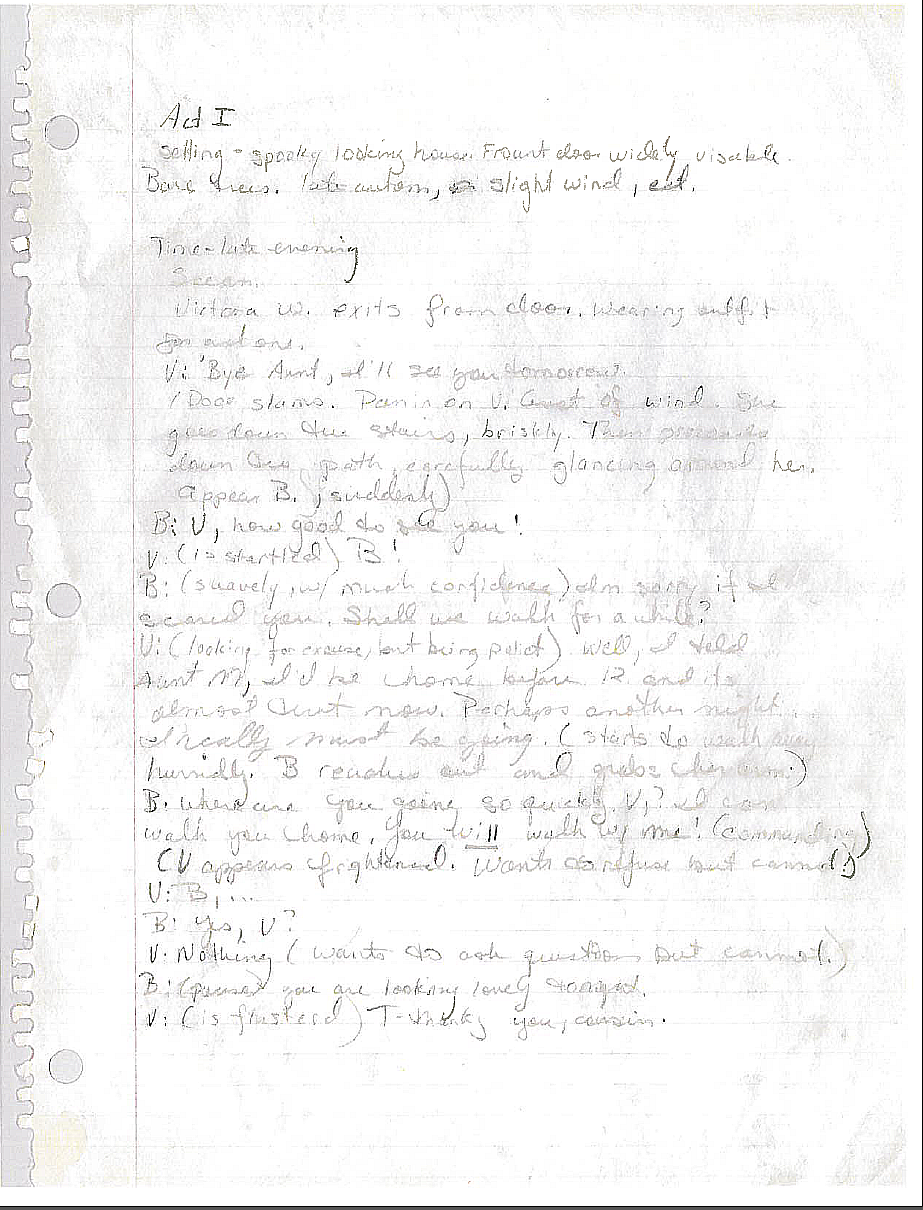 Act I
Setting - spooky looking house. Frount door widely visable.
Bare trees. late autom, slight wind, ect.
Time - late evening
Scean.
Victoria W. exits from door. Wearing outfit
for act one.
V: 'Bye Aunt, I'll see you tomorrow.
(Door slams. Pan in on V. Gust of wind. She
goes down the stairs, briskly. Then proceeds
down the path, carefully glancing around her.
Appear B. , suddenly)
B: V, how good to see you!
V: (is startled) B!
B: (suavely, w/ much confidence) I'm sorry if I
scared you. Shall we walk for a while?
V: (looking for excuse, but being polict) Well, I told
Aunt M, I'd be home before 12 and its
almost that now. Perhaps another night.
I really must be going. (starts to walk away
hurridly. B reaches out and grabs her arm.)
B: Where are you going so quickly, V,? I can
walk you home. You will walk w/ me! (commanding)
(V appears frightened. Wants to refuse but cannot.)
V: B, ...
B: Yes, V?
V: Nothing (wants to ask question but cannot.)
B: (pause) you are looking lovely tonight.
V: (is flusterd) T-thank you, cousin.